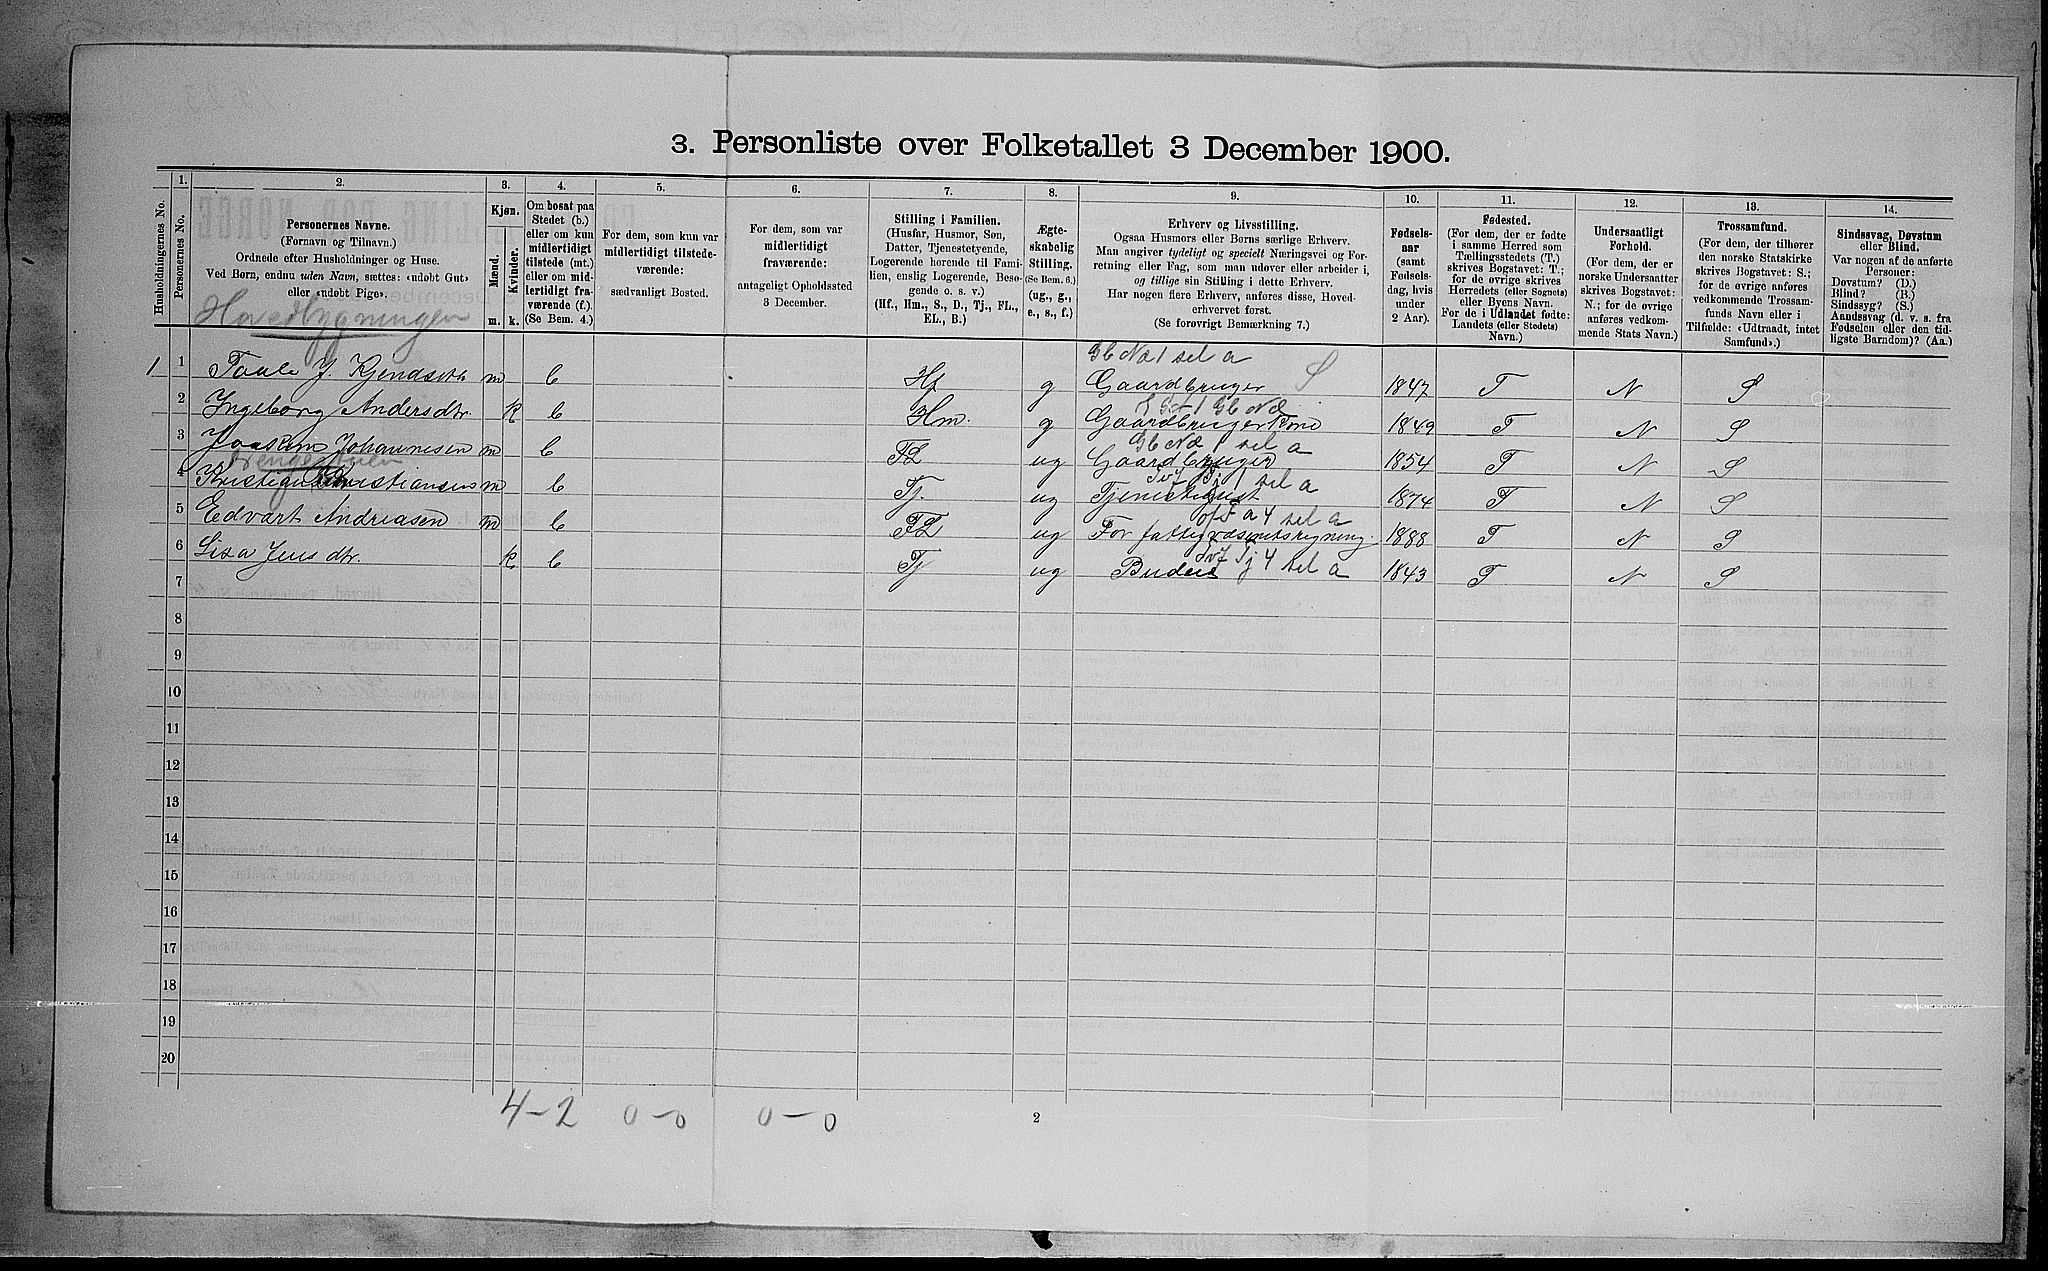 3. Personliste over Folketallet 3 December 1900.
Husholdningernes No.
1.
Personernes No.
2.
Personernes Navne.
(Fornavn og Tilnavn.)
Ordnede efter Husholdninger og Huse.
Ved Børn, endnu uden Navn, sættes: «udøbt Gut»
eller «udøbt Pige».
Hovedbygningen
3.
Kjøn.
Mænd.
Kvinder.
m.
k.
4.
Om bosat paa
Stedet (b.)
eller om kun
midlertidigt
tilstede (mt.)
eller om mid-
lertidigt fra-
værende (f.)
(Se Bem. 4.)
5.
For dem, som kun var
midlertidigt tilstede-
værende:
sædvanligt Bosted.
6.
For dem, som var
midlertidigt
fraværende:
antageligt Opholdssted
3 December.
7.
Stilling i Familien.
(Husfar, Husmor, Søn,
Datter, Tjenestetyende,
Logerende hørende til Fami-
lien, enslig Logerende, Besø-
gende o. s. v.)
(Hf., Hm., S., D., Tj., FL.,
EL., B.)
8.
Ægte-
skabelig
Stilling.
(Se Bem. 6.)
(ug., g.,
e., s., f.)
9.
Erhverv og Livsstilling.
Ogsaa Husmors eller Børns særlige Erhverv.
Man angiver tydeligt og specielt Næringsvei og For-
retning eller Fag, som man udøver eller arbeider i,
og tillige sin Stilling i dette Erhverv.
Har nogen flere Erhverv, anføres disse, Hoved-
erhvervet først.
(Se forøvrigt Bemærkning 7.)
10.
Fødsels-
aar
(samt
Fødsels-
dag, hvis
under
2 Aar).
11.
Fødested.
(For dem, der er fødte
i samme Herred som
Tællingsstedets (T.)
skrives Bogstavet: T.;
for de øvrige skrives
Herredets (eller Sognets)
eller Byens Navn.
For de i Udlandet fødte:
Landets (eller Stedets)
Navn.)
12.
Undersaatligt
Forhold.
(For dem, der er
norske Undersaatter
skrives Bogstavet:
N.; for de øvrige
anføres vedkom-
mende Stats Navn.)
13.
Trossamfund.
(For dem, der tilhører
den norske Statskirke
skrives Bogstavet: S.;
for de øvrige anføres
vedkommende Trossam-
funds Navn eller i
Tilfælde: «Udtraadt, intet
Samfund».)
14.
Sindssvag, Døvstum
eller Blind.
Var nogen af de anførte
Personer:
Døvstum? (D.)
Blind? (B.)
Sindssyg? (S.)
Aandssvag (d. v. s. fra
Fødselen eller den tid-
ligste Barndom)? (Aa.)
Gb No 1 sel a
1 1 J. Kjendseth m b Hf g Gaardbruger S 1847 T N S
1 Gb No
2 Ingeborg Andersdtr. k b Hm. g Gaardbrugerkone 1849 T N S
Gb No 1 sel a
3 Joakim Johannesen m b FL ug Gaardbruger 1854 T N S
Drengestuen
Tj 1 sel a
4 Kristian Kristiansen m b Tj. ug Tjenestegut 1874 T N S
a 4 sel a
5 Edvart Andreasen m b FL ug For fattigvæsenets regning. 1888 T N S
Tj 4 sel a
6 Lisa Jensdtr. k b Tj ug Budeie 1843 T N S
7
8
9
10
11
12
13
14
15
16
17
18
19
20
4-2 0-0 0-0
2